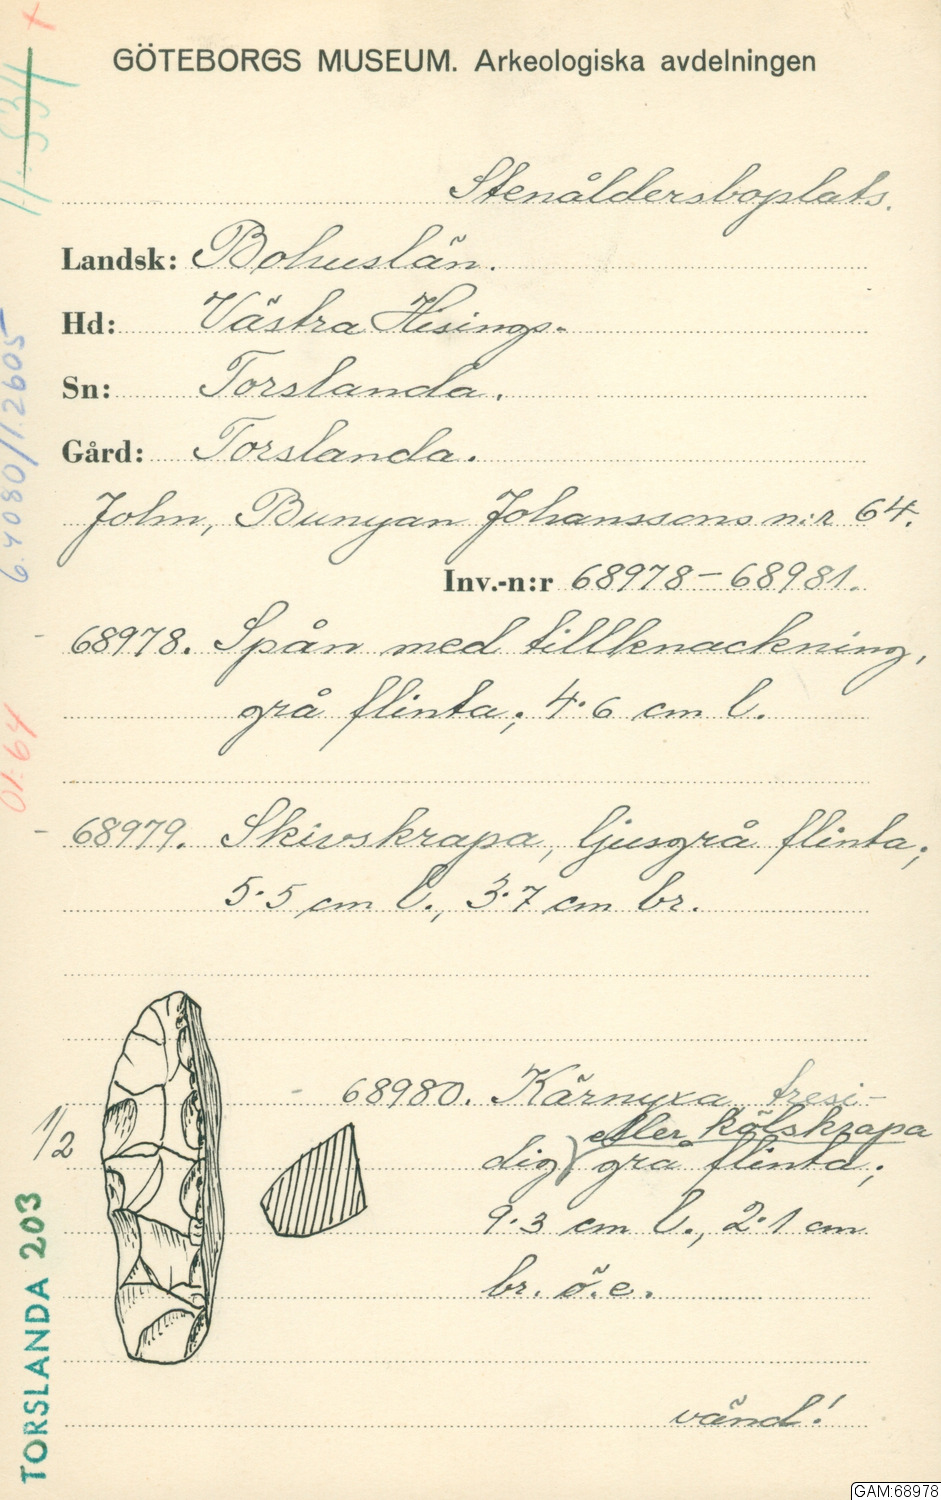 GÖTEBORGS MUSEUM. Arkeologiska avdelningen
Stenåldersboplats.
Landsk: Bohuslän.
Hd: Västra Hisings-
Sn: Torslanda.
Gård: Torslanda.
John, Bunyan Johanssons n:r 64.
Inv.-n:r 68978-68981.
68978. Spån med tillknackning,
grå flinta; 4.6 cm l.
68979. Skivskrapa, ljusgrå flinta;
5.5 cm l., 3.7 cm br.
68980. Kärnyxa tresi-
eller kölskrapa
dig grå flinta;
9.3 cm l., 2.1 cm
br. ö.e.
vänd!
1/2
TORSLANDA 203
01.64
6.4080/1.2605
GAM:68978